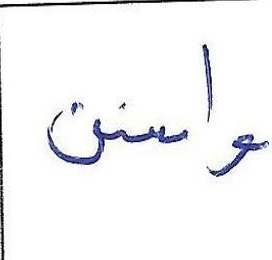 واسنن